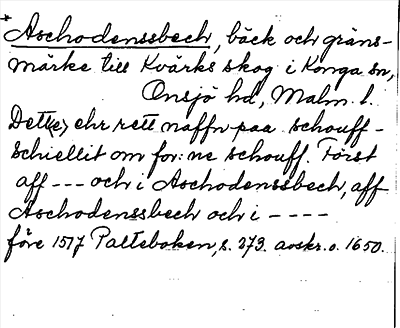 Aschodenssbech, bäck och gräns-
märke till Kvärks skog i Konga sn,
Onsjö hd, Malm. l.
Dette ehr rett naffn paa schouff-
schiellit om for:ne schouff. Först
aff --- och i Aschodenssbech, aff
Aschodenssbech och i ----
före 1517 Palteboken, s. 273. avskr. o. 1650.